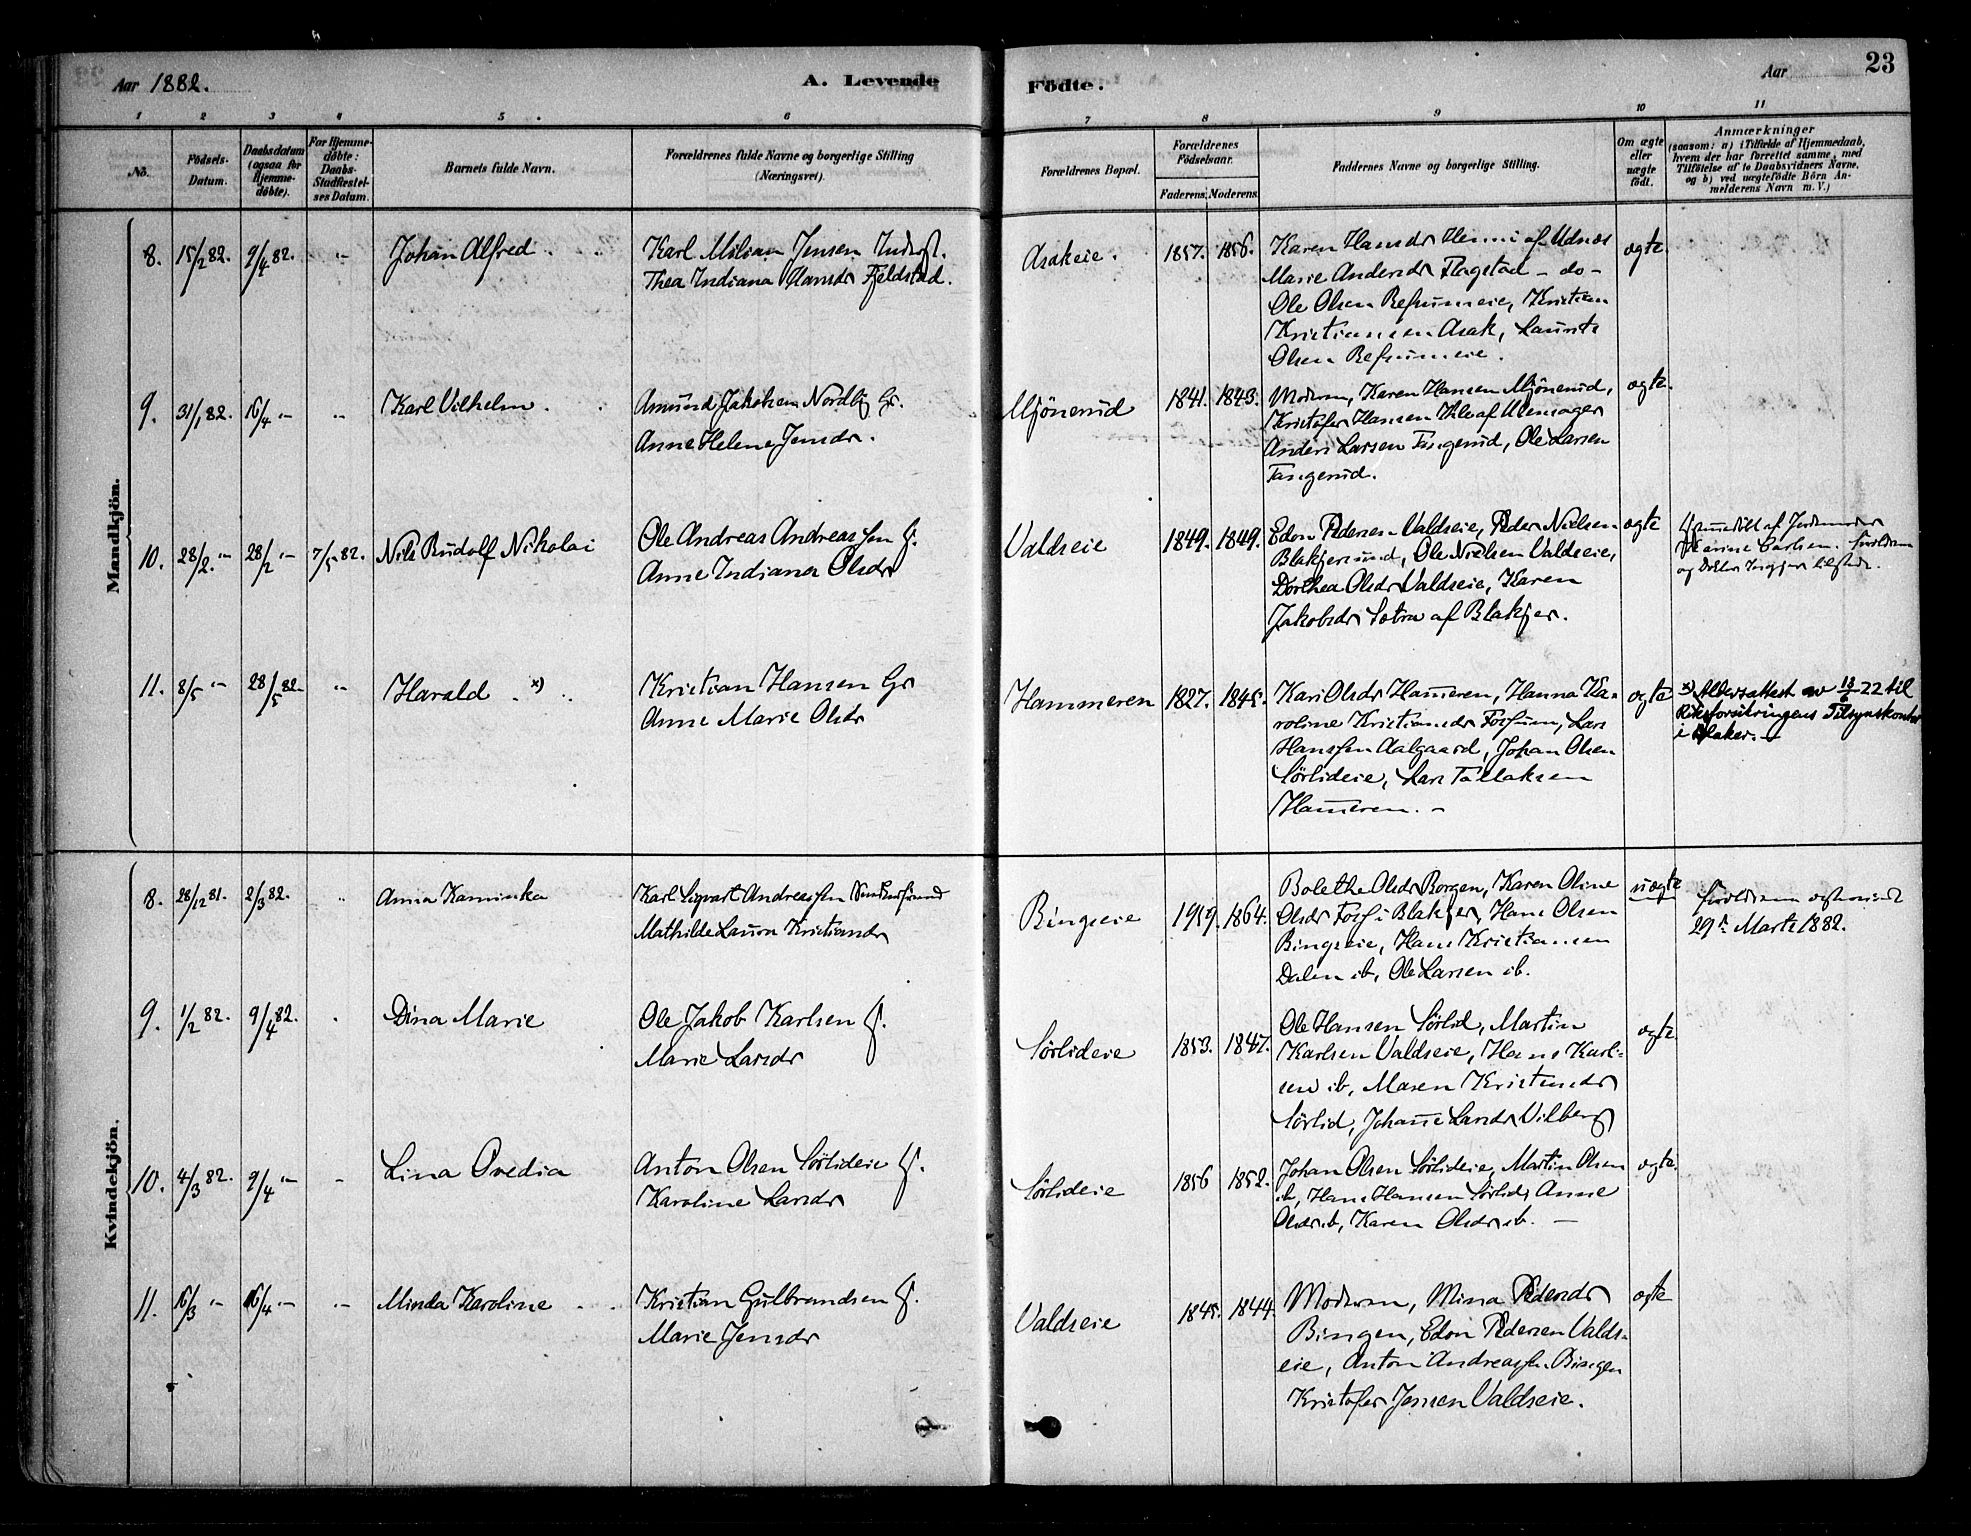 Aar 1882.
A. Levende
Födte.
Aar
23
1 2 3 4 5 6 7 8 9 10 11
No.
Födsels-Datum.
Daabsdatum (ogsaa for Hjemmedöbte).
For Hjemmedöbte: Daabs-Stadfæstelses Datum.
Barnets fulde Navn.
Forældrenes fulde Navne og borgerlige Stilling (Næringsvei).
Forældrenes Bopæl.
Forældrenes Födselsaar.
Faderens. Moderens.
Faddernes Navne og borgerlige Stilling.
Om ægte eller uægte födt.
Anmærkninger (saasom: a) i Tilfælde af Hjemmedaab, hvem der har forrettet samme, med Tilföielse af to Daabsvidners Navne, og b) ved uægtefödte Börn Anmelderens Navn m. V.)
Mandkjön.
8. 15/2 82. 9/4 82. -- Johan Alfred
Karl Milian Jensen Inderst.
Thea Indiana Hansdr Fjeldstad.
Asakeie. 1857. 1856.
Karen Hansdr Hemni af Udnæs
Marie Andersdr Flagstad - do -
Ole Olsen Refsumeie, Kristian
Kristiansen Asak, Laurits
Olsen Refsumeie.
ægte.
9. 31/1 82. 16/4 -- -- Karl Vilhelm.
Amund Jakobsen Nordby Gr.
Anne Helene Jensdr.
Mjönerud 1841. 1843.
Moderen, Karen Hansen Mjönerud,
Kristofer Hansen Ihle af Ulensager
Anders Larsen Tangerud, Ole Larsen
Tangerud.
ægte.
10. 28/2. -- 28/2 -- 7/5 82. Nils Rudolf Nikolai
Ole Andreas Andreassen
Anne Indiana Olsdr
Valdseie 1849. 1849.
Edon Pedersen Valdseie, Peder Nielsen
Blakjersund, Ole Nielsen Valdseie,
Dorthea Olsdr Valdseie, Karen
Jakobsdr Sætra af Blakjer.
ægte
Hjemmedöbt af Jordemoder
Karine Carlsen. Forældrene
og tilstede.
11. 8/5 -- 28/5 82. -- Harald x)
Kristian Hansen Gr
Anne Marie Olsdr
Hammeren 1827. 1845.
Kari Olsdr Hameren, Hanna Ka-
roline Kristiansdr Fossum, Lars
Hanssen Aalgaard, Johan Olsen
Sörlideie, Lars Tallaksen
Hameren. -
ægte
x) Aldersattest av 13/6 22 til
Riksforsikringens Tilsynskontor
i Blaker. -
Kvindekjön.
8. 28/12 81. 2/3 82. Anna Kaminka
Karl Sigvart Andreassen
Mathilde Laura Kristiansdr
Bingseie 1959. 1864.
Bolethe Olsdr Borgen, Karen Oline
Olsdr Foss i Blakjer, Hans Olsen
Bingseie, Hans Kristiansen
Dalen ib, Ole Larsen ib.
uægte
Forældrene
29n Marts 1882.
9. 1/2 82. 9/4 82. Dina Marie
Ole Jakob Karlsen
Marie Larsdr
Sörlideie 1853. 1847.
Ole Hansen Sörlid, Martin
Karlsen Valdseie, Hans Karl-
sen ib, Maren Kristensdr
Sörlid, Johanne Larsdr Vilberg
ægte.
10. 4/3 82. 9/4 -- - Lina Ovedia
Anton Olsen Sörlideie
Karoline Larsdr
Sörlideie 1856 1852.
Johan Olsen Sörlideie, Martin Olsen
ib, Hans Hansen Sörlid, Anne
Olsdr ib, Karen Olsdr ib. -
ægte.
11. 16/3 -- 16/4 -- -- Minda Karoline
Kristian Gulbrandsen
Marie Jensdr
Valdseie 1845. 1844.
Moderen, Mina Pedersdr
Bingen, Edon Pedersen Valds-
eie, Anton Andreassen Bingen
Kristofer Jensen Valdseie.
ægte